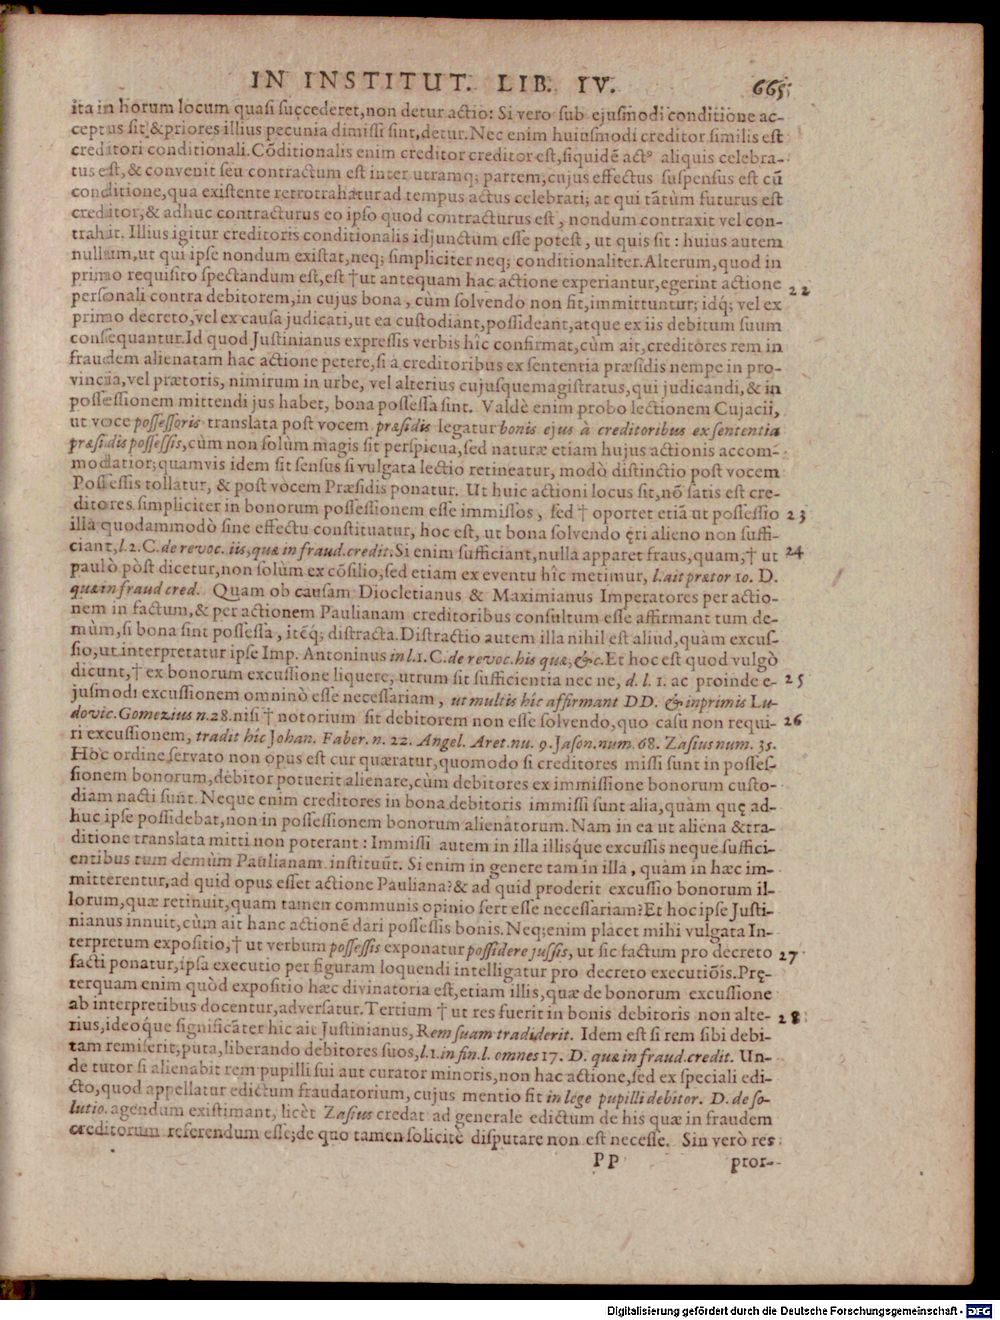 IN INSTITUT. LIB. IV. 665
ita in horum locum quasi succederet, non detur actio: Si vero sub ejusmodi conditione ac-
ceptus sit, & priores illius pecunia dimissi sint, detur. Nec enim huiusmodi creditor similis est
creditori conditionali. Cōditionalis enim creditor creditor est, siquidē actꝰ aliquis celebra-
tus est, & convenit seu contractum est inter utramq; partem, cujus effectus suspensus est cū
conditione, qua existente retrotrahatur ad tempus actus celebrati; at qui tātùm futurus est
creditor, & adhuc contracturus eo ipso quod contracturus est, nondum contraxit vel con-
trahit. Illius igitur creditoris conditionalis idjunctum esse potest, ut quis sit: huius autem
nullum, ut qui ipse nondum existat, neq; simpliciter neq; conditionaliter. Alterum, quod in
primo requisito spectandum est, est † ut antequam hac actione experiantur, egerint actione 22
personali contra debitorem, in cujus bona, cùm solvendo non sit, immittuntur; idq; vel ex
primo decreto, vel ex causa judicati, ut ea custodiant, possideant, atque ex iis debitum suum
consequantur. Id quod Justinianus expressis verbis hîc confirmat, cùm ait, creditores rem in
fraudem alienatam hac actione petere, si à creditoribus ex sententia præsidis nempe in pro-
vincia, vel prætoris, nimirum in urbe, vel alterius cujusque magistratus, qui judicandi, & in
possessionem mittendi jus habet, bona possessa sint. Valdè enim probo lectionem Cujacii,
ut voce possessoris translata post vocem præsidis legatur bonis ejus à creditoribus ex sententia
præsidis possessis, cùm non solùm magis sit perspicua, sed naturæ etiam hujus actionis accom-
modatior; quamvis idem sit sensus si vulgata lectio retineatur, modò distinctio post vocem
Possessis tollatur, & post vocem Præsidis ponatur. Ut huic actioni locus sit, nō satis est cre-
ditores simpliciter in bonorum possessionem esse immissos, sed † oportet etiā ut possessio 23
illa quodammodò sine effectu constituatur, hoc est, ut bona solvendo ęri alieno non suffi-
ciant, l. 2. C. de revoc. iis, quæ in fraud. credit. Si enim sufficiant, nulla apparet fraus, quam, † ut 24
paulò pòst dicetur, non solùm ex cōsilio, sed etiam ex eventu hîc metimur, l. ait prætor 10. D.
quæ in fraud cred. Quam ob causam Diocletianus & Maximianus Imperatores per actio-
nem in factum, & per actionem Paulianam creditoribus consultum esse affirmant tum de-
mùm, si bona sint possessa, itēq; distracta. Distractio autem illa nihil est aliud, quàm excus-
sio, ut interpretatur ipse Imp. Antoninus in l. 1. C. de revoc. his quæ, &c. Et hoc est quod vulgò
dicunt, † ex bonorum excussione liquere, utrum sit sufficientia nec ne, d. l. 1. ac proinde e- 25
jusmodi excussionem omninò esse necessariam, ut multis hîc affirmant DD. & inprimis Lu-
dovic. Gomezius n. 28. nisi † notorium sit debitorem non esse solvendo, quo casu non requi- 26
ri excussionem, tradit hîc Johan. Faber. n. 22. Angel. Aret. nu. 9. Jason. num. 68. Zasius num. 35.
Hoc ordine servato non opus est cur quæratur, quomodo si creditores missi sunt in posses-
sionem bonorum, debitor potuerit alienare, cùm debitores ex immissione bonorum custo-
diam nacti sunt. Neque enim creditores in bona debitoris immissi sunt alia, quàm quę ad-
huc ipse possidebat, non in possessionem bonorum alienatorum. Nam in ea ut aliena & tra-
ditione translata mitti non poterant: Immissi autem in illa illisque excussis neque suffici-
entibus tum demùm Paulianam instituūt. Si enim in genere tam in illa, quàm in hæc im-
mitterentur, ad quid opus esset actione Pauliana? & ad quid proderit excussio bonorum il-
lorum, quæ retinuit, quam tamen communis opinio fert esse necessariam? Et hoc ipse Justi-
nianus innuit, cùm ait hanc actionē dari possessis bonis. Neq; enim placet mihi vulgata In-
terpretum expositio, † ut verbum possessis exponatur possidere jussis, ut sic factum pro decreto 27
facti ponatur, ipsa executio per figuram loquendi intelligatur pro decreto executiōis. Prę-
terquam enim quòd expositio hæc divinatoria est, etiam illis, quæ de bonorum excussione
ab interpretibus docentur, adversatur. Tertium † ut res fuerit in bonis debitoris non alte- 28
rius, ideoque significāter hic ait Justinianus, Rem suam tradiderit. Idem est si rem sibi debi-
tam remiserit, puta, liberando debitores suos, l. 1. in fin. l. omnes 17. D. quæ in fraud. credit. Un-
de tutor si alienabit rem pupilli sui aut curator minoris, non hac actione, sed ex speciali edi-
cto, quod appellatur edictum fraudatorium, cujus mentio fit in lege pupilli debitor. D. de so-
lutio. agendum existimant, licèt Zasius credat ad generale edictum de his quæ in fraudem
creditorum referendum esse; de quo tamen solicitè disputare non est necesse. Sin verò res
PP pror-
Digitalisierung gefördert durch die Deutsche Forschungsgemeinschaft - DFG